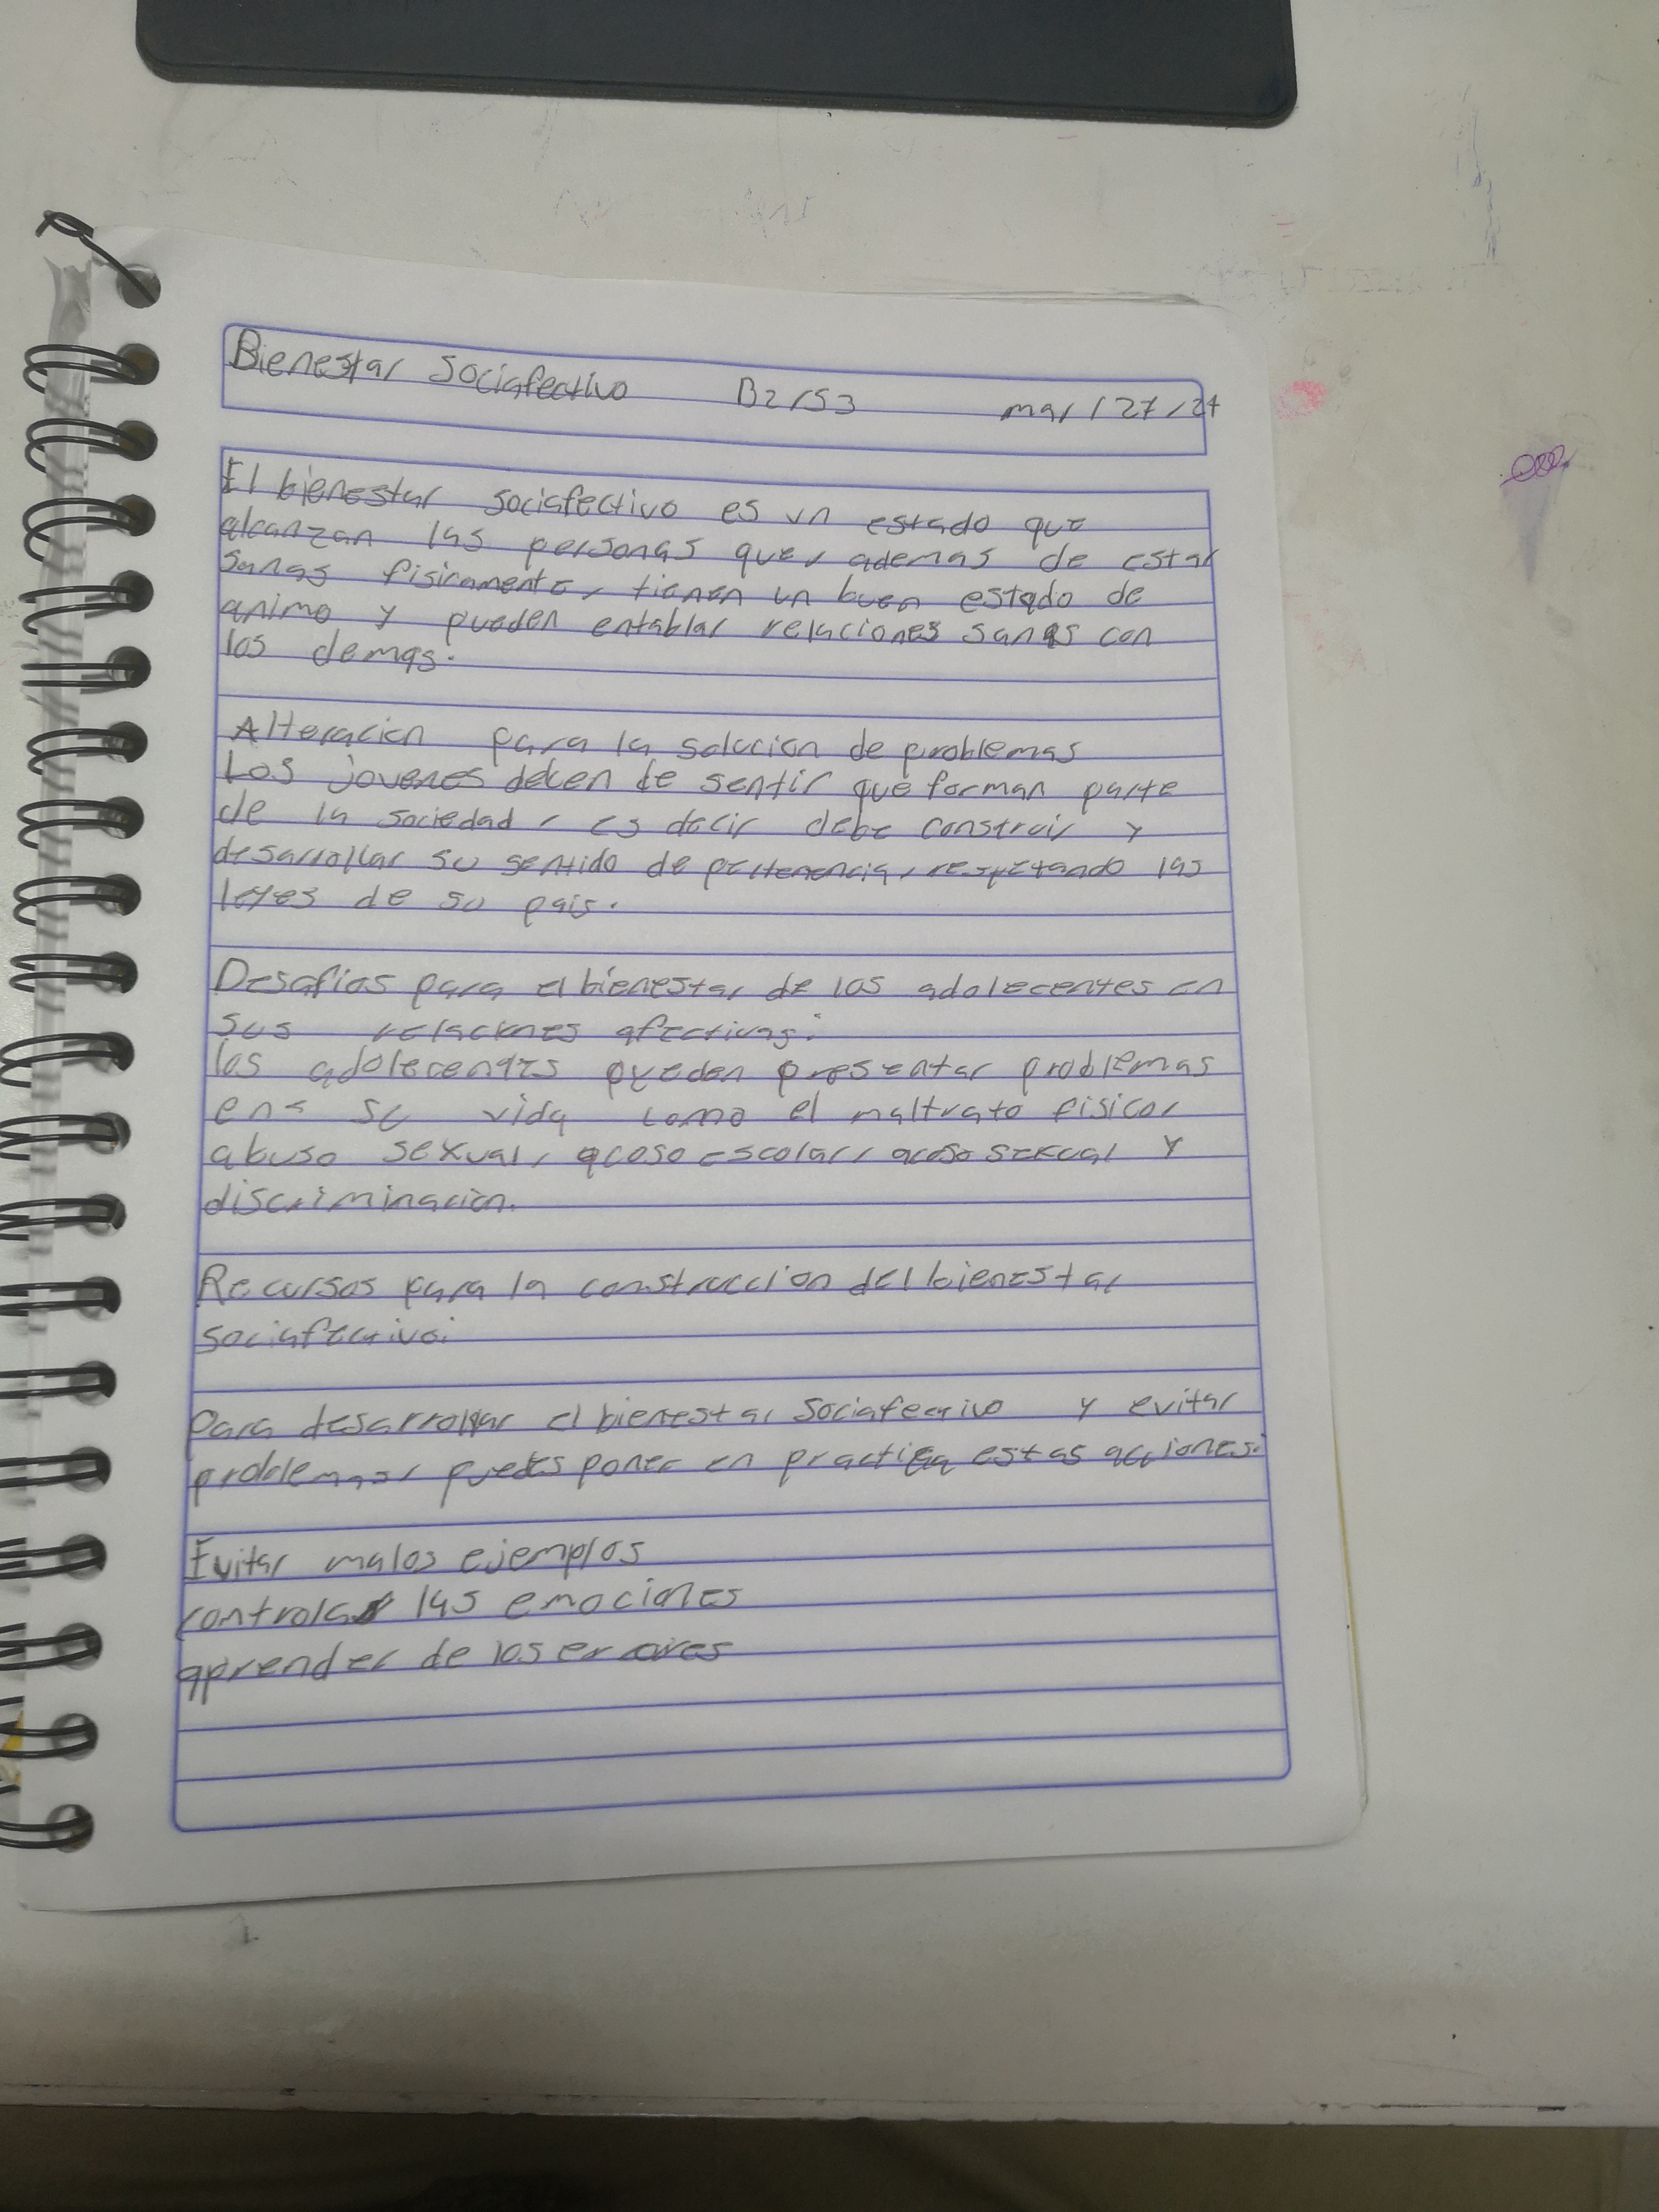 Bienestar Sociafectivo B2/S3 mar/27/24
El bienestar sociafectivo es un estado que
alcanzan las personas que, ademas de estar
sanas fisicamente, tienen un buen estado de
animo y pueden entablar relaciones sanas con
los demas.
Alteracion para la solucion de problemas
Los jovenes deben de sentir que forman parte
de la sociedad, es decir debe construir y
desarrollar su sentido de pertenencia, respetando las
leyes de su pais.
Desafios para el bienestar de los adolecentes en
sus relaciones afectivas:
los adolecentes pueden presentar problemas
en su vida como el maltrato fisico,
abuso sexual, acoso escolar, acoso sexual y
discriminacion.
Recursos para la construccion del bienestar
sociafectivo:
Para desarrollar el bienestar sociafectivo y evitar
problemas, puedes poner en practica estas acciones:
Evitar malos ejemplos
controlar las emociones
aprender de los errores